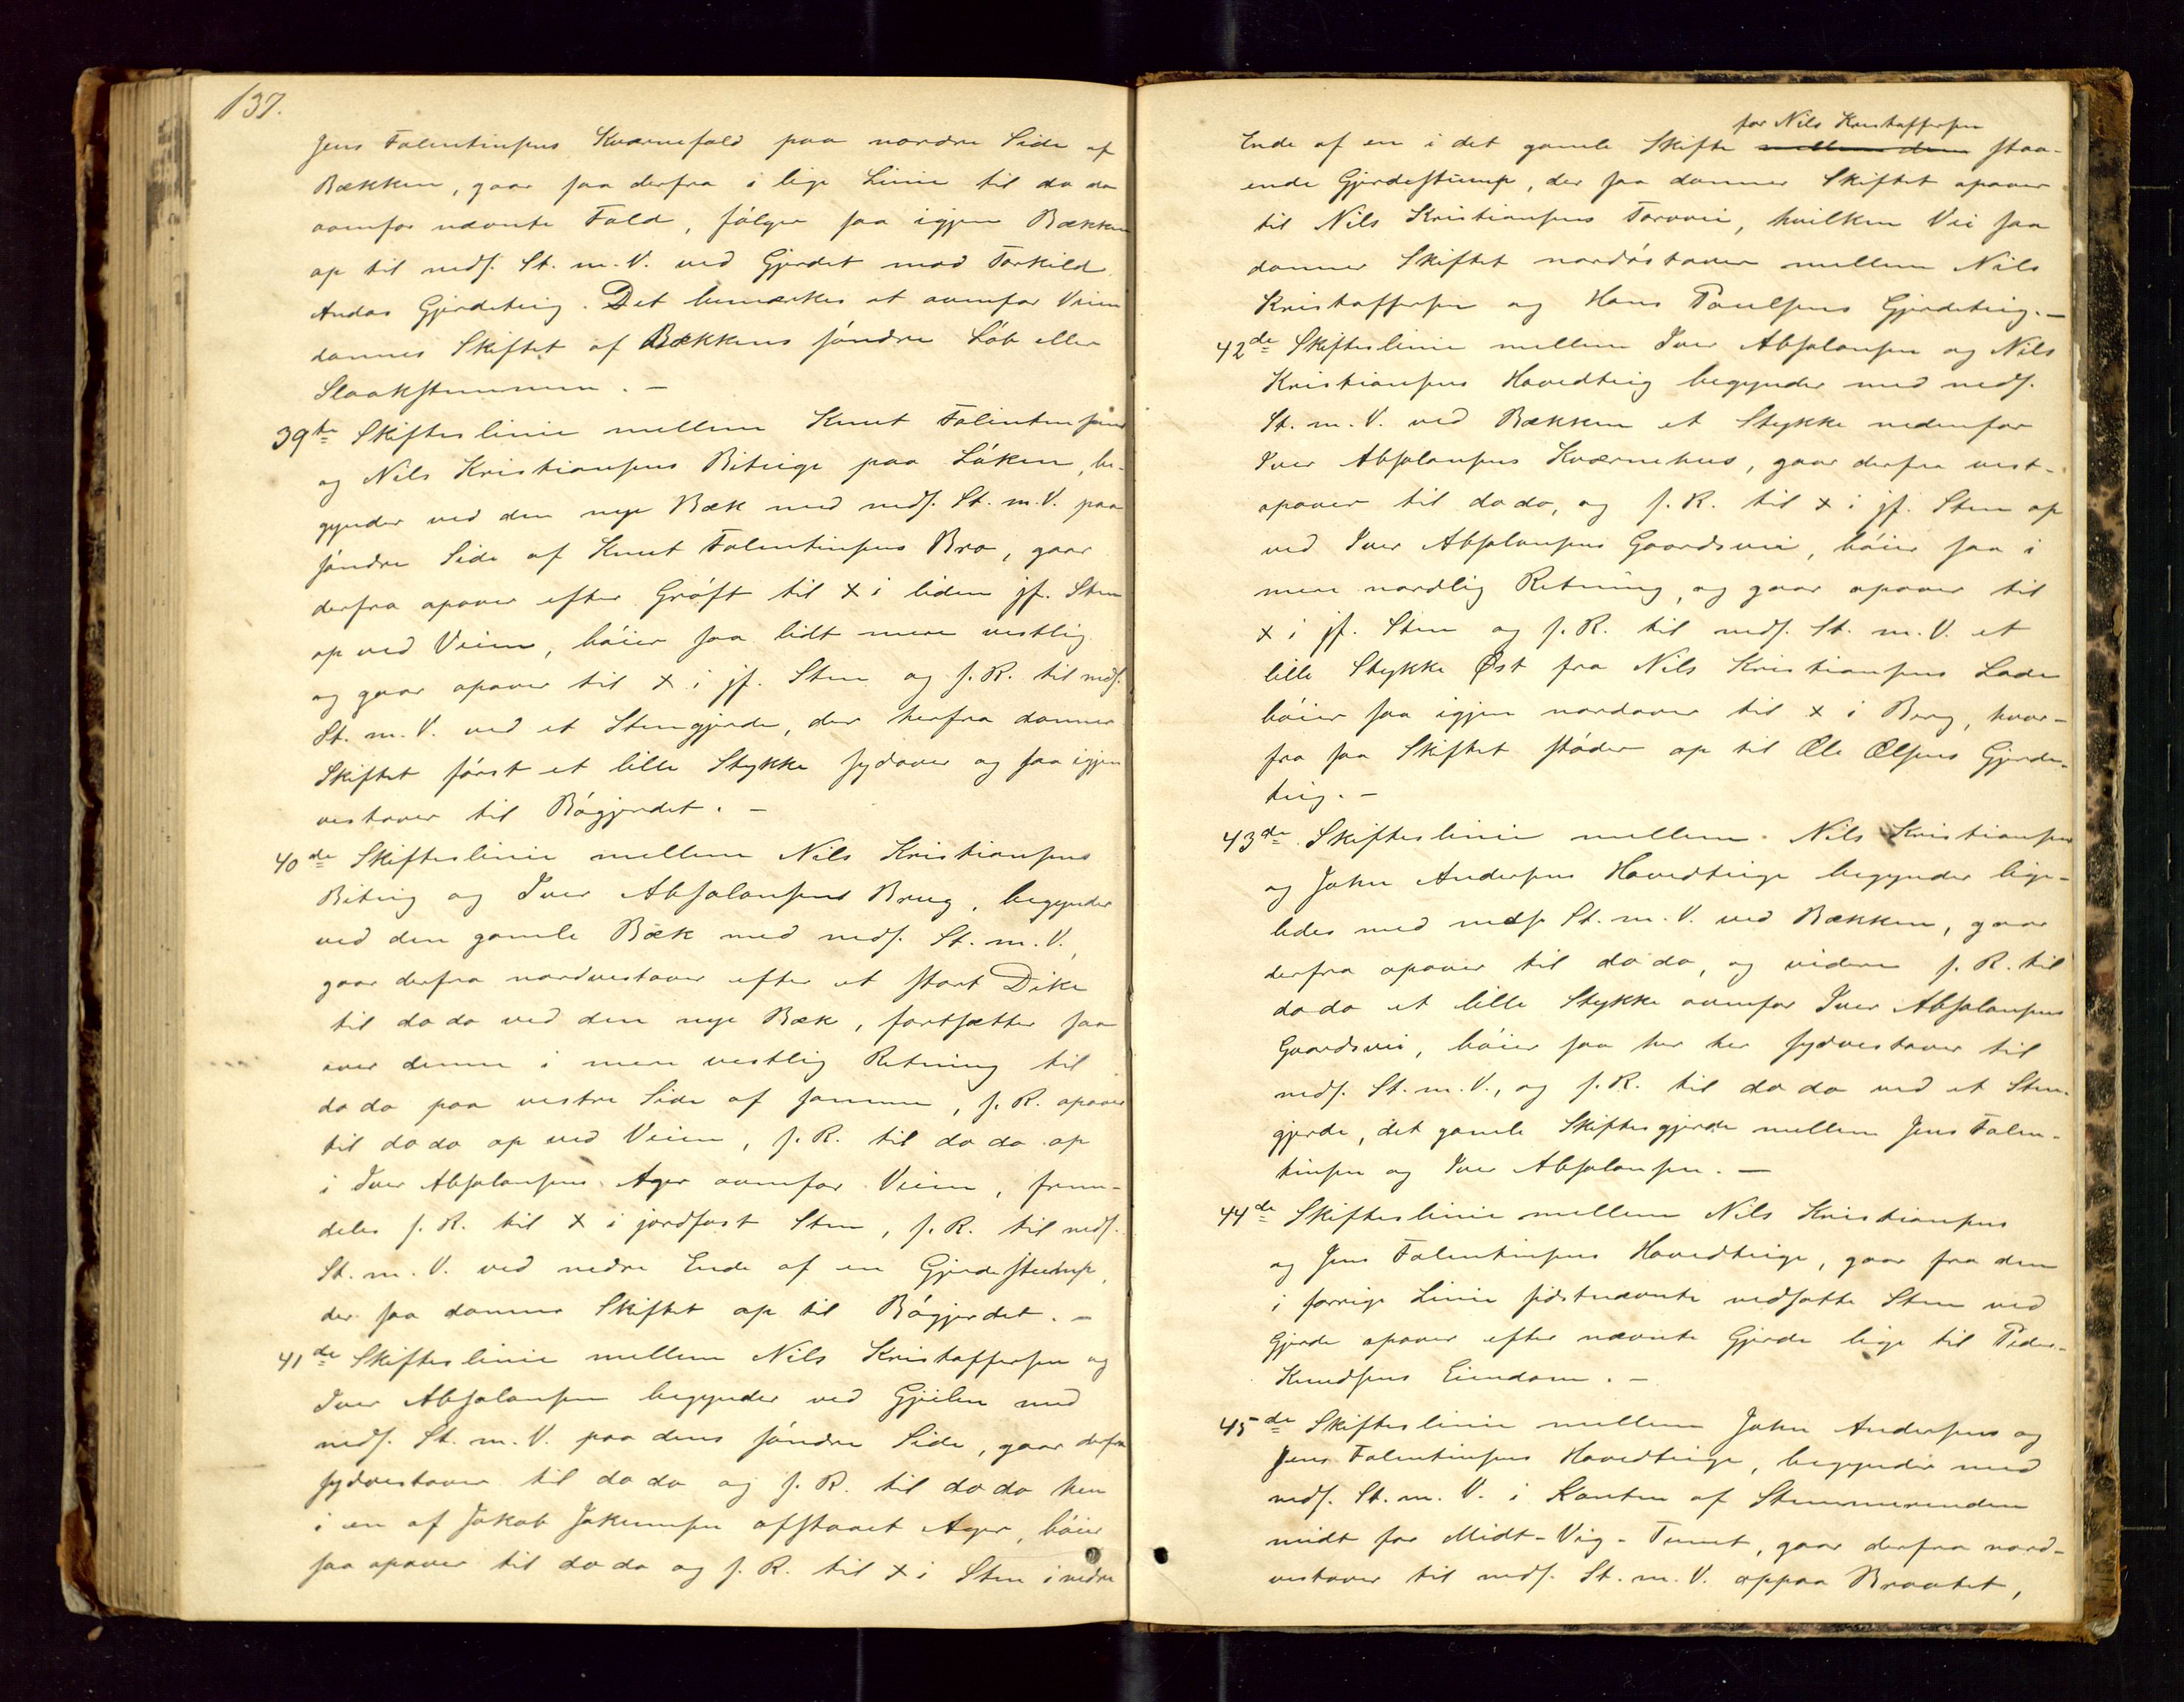 137.
Jens Falentinsens Kværnefald paa nordre Side af
Bækken, gaar saa derfra i lige Linie til do do
ovenfor nævnte Fald, følger saa igjen Bækken
op til neds. St. m. V. ved Gjerdet mod Torkild
Andas Gjerdeteig. Det bemærkes at ovenfor Veien
dannes Skiftet af Bækkens søndre Løb eller
39te Skifteslinie mellem Knut Falentinsens
og Nils Kristiansens Biteige paa Løken, be-
gynder ved den nye Bæk med neds. St. m. V. paa
søndre Side af Knut Falentinsens Bro, gaar
derfra opover efter Grøft til x i liden jf. Sten
op ved Veien, bøier saa lidt mere vestlig
og gaar opover til x i jf. Sten og s. R. til neds.
St. m. V. ved et Stengjerde, der herfra danner
Skiftet først et lille Stykke sydover og saa igjen
vestover til Bøgjerdet. -
40de Skifteslinie mellem Nils Kristiansens
Biteig og Iver Absalonsens Brug, begynder
ved den gamle Bæk med neds. St. m. V.
gaar derfra nordvestover efter et stort Dike
til do do ved den nye Bæk, fortsætter saa
over denne i mere vestlig Retning til
do do paa vestre Side af samme, s. R. opover
til do do op ved Veien, s. R. til do do op
i Iver Absalonsens Ager ovenfor Veien, frem-
deles s. R. til x i jordfast Sten, s. R. til neds.
St. m. V. ved nedre Ende af en Gjerdestump,
der saa danner Skiftet op til Bøgjerdet. -
41de Skifteslinie mellem Nils Kristoffersen og
Iver Absalonsen begynder ved Gjeilen med
neds. St. m. V. paa dens søndre Side, gaar derfra
sydvestover til do do og s. R. til do do hen
i en af Jakob Jokumsen afstaaet Ager, bøier
saa opover til do do og s. R. til x i Sten i nedre
for Nils Kristoffersen
Ende af en i det gamle Skifte mellem dem staa-
ende Gjerdestump, der saa danner Skiftet opover
til Nils Kristiansens Torvvei, hvilken Vei saa
danner Skiftet nordøstover mellem Nils
Kristoffersen og Hans Paulsens Gjerdeteig. -
42de Skifteslinie mellem Iver Absalonsen og Nils
Kristiansens Hovedteig begynder med neds.
St. m. V. ved Bækken et Stykke nedenfor
Iver Absalonsens Kværnehus, gaar derfra vest-
opover til do do, og s. R. til x i jf. Sten op
ved Iver Absalonsens Gaardsvei, bøier saa i
mere nordlig Retning, og gaar opover til
x i jf. Sten og s. R. til neds. St. m. V. et
lille Stykke Øst fra Nils Kristiansens Lade
bøier saa igjen nordover til x i Berg, hvor-
fra saa Skiftet støder op til Ole Olsens Gjerde-
teig. -
43de Skifteslinie mellem Nils Kristiansen
og John Andersens Hovedteige begynder lige-
ledes med neds. St. m. V. ved Bækken, gaar
derfra opover til do do, og videre s. R. til
do do et lille Stykke ovenfor Iver Absalonsens
Gaardsvei, bøier saa her her sydvestover til
neds. St. m. V., og s. R. til do do ved et Sten-
gjerde, det gamle Skiftesgjerde mellem Jens Falen-
tinsen og Iver Absalonsen. -
44de Skifteslinie mellem Nils Kristiansens
og Jens Falentinsens Hovedteige, gaar fra den
i forrige Linie sidstnævnte nedsatte Sten ved
Gjerde opover efter nævnte Gjerde lige til Peder
Knudsens Eiendom. -
45de Skifteslinie mellem John Andersens og
Jens Falentinsens Hovedteige, begynder med
neds. St. m. V. i Kanten af Stemmerenden
midt for Midt-Vig-Tunet, gaar derfra nord-
vestover til neds. St. m. V. oppaa Braatet,